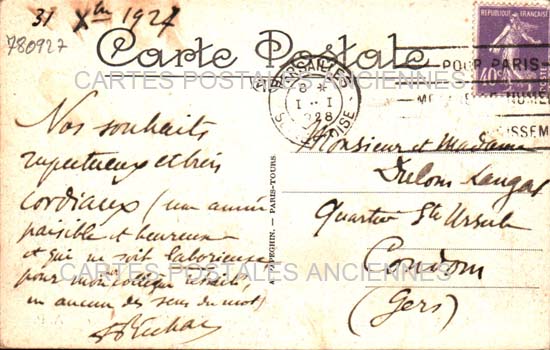 31 Xbre 1927
780927
Carte Postale
CARTES POSTALES ANCIENNES
REPUBLIQUE FRANÇAISE
40c
VERSAILLES
I - I
28
S. & OISE
POUR PARIS
Nos souhaits
respectueux et très
cordiaux (une année
paisible et heureuse
et qui ne soit laborieuse
pour mon collègue retraité,
en aucun des sens du mot)
Monsieur et Madame
Quartier Ste Ursule
Condom
(Gers)
CARTES POSTALES ANCIENNES
PARIS-TOURS